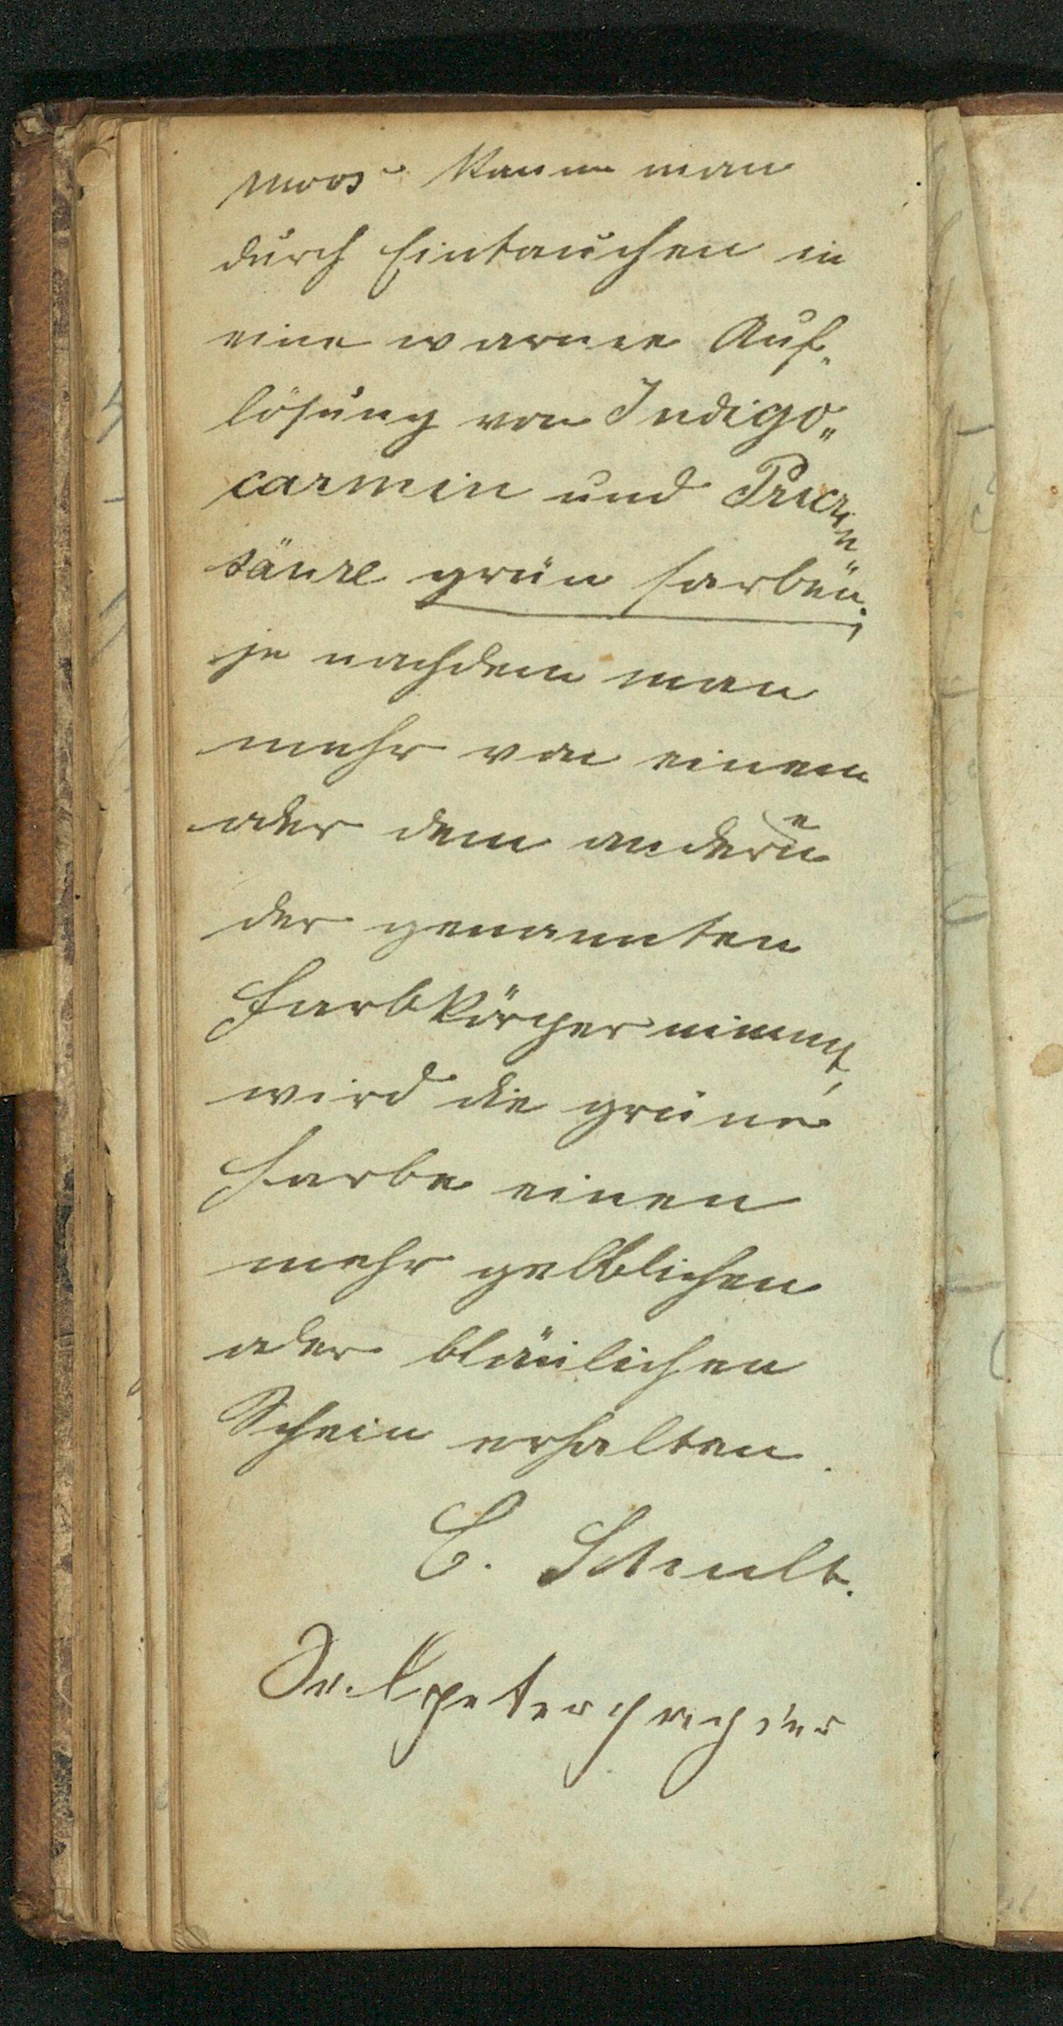 Moos kann man
durch Eintauchen in
eine warme Auf„
lösung von Indigo„
carmin und Pikrin„
säure grün farben.
je nachdem man
mehr von einem
oder dem andern
der genannten
Farbkörper nimmt,
wird die grüne
Farbe einen
mehr gelblichen
oder bläulichen
Schein erhalten.
C.
Salpeterpapier